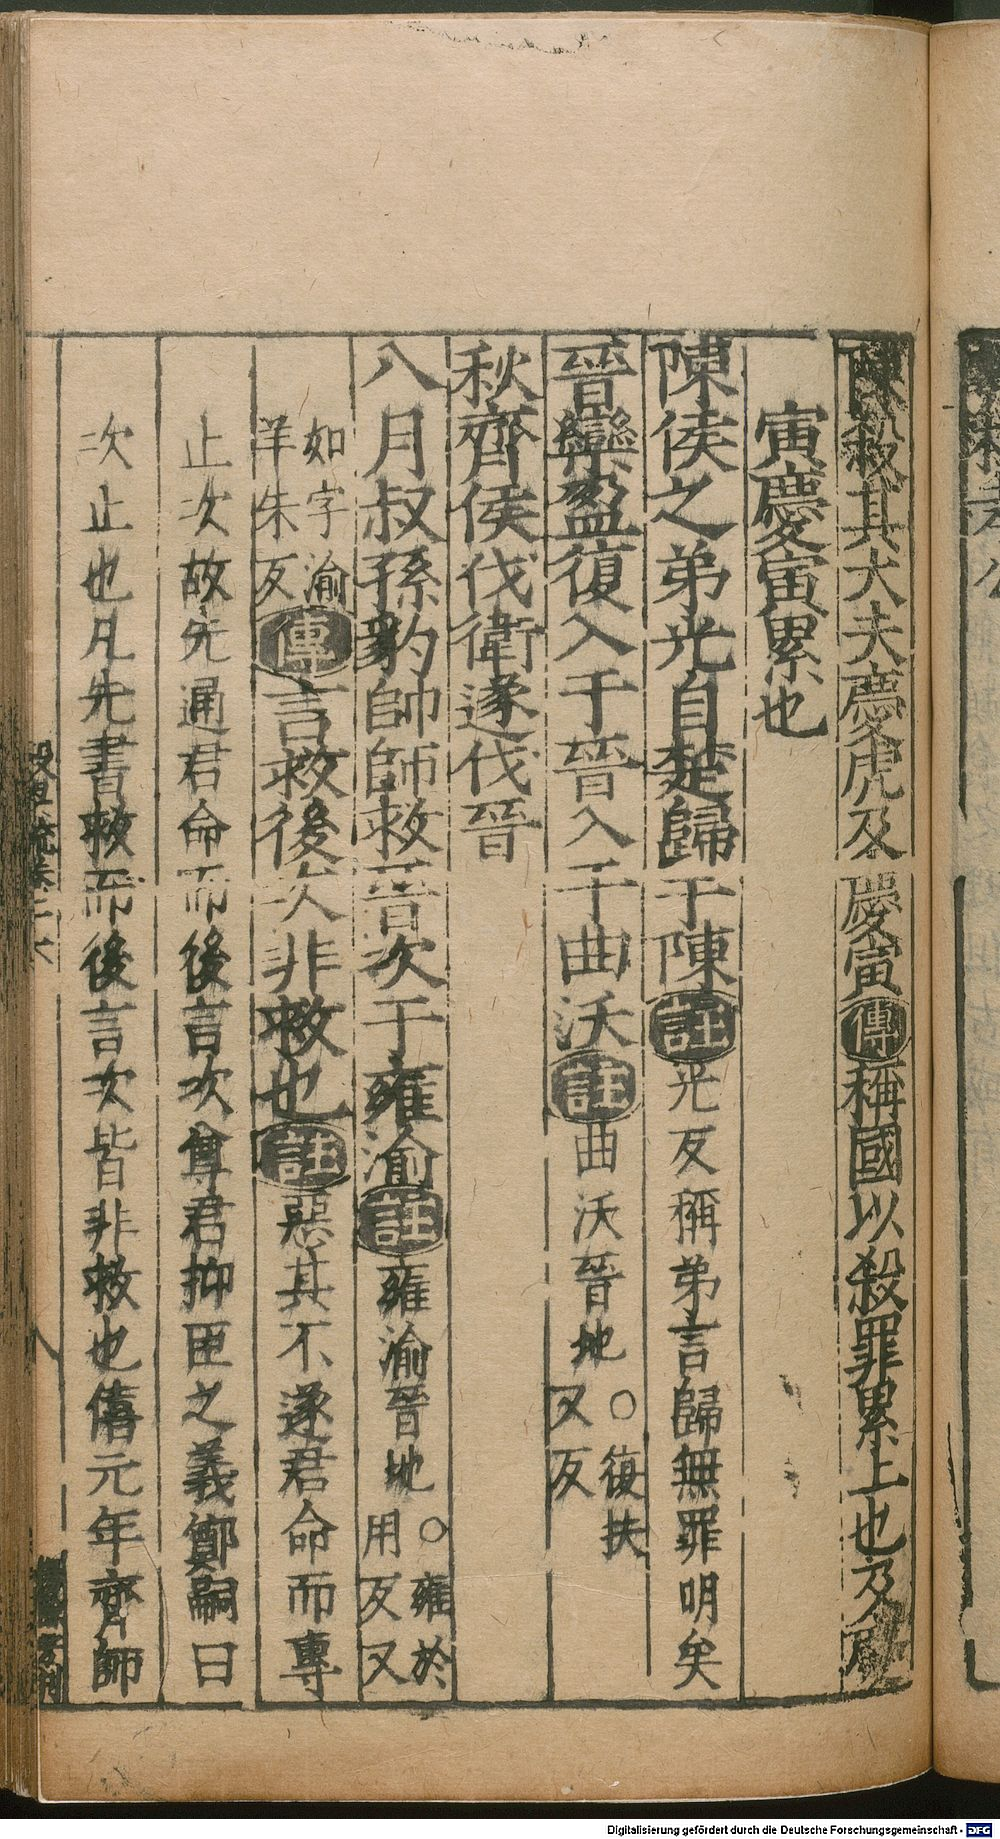 陳殺其大夫慶虎及慶寅傳稱國以殺罪累上也及慶
寅慶寅累也
陳侯之弟光自楚歸于陳註光反稱弟言歸無罪明矣
晉欒盈復入于晉入于曲沃註曲沃晉地○復扶又反
秋齊侯伐衛遂伐晉
八月叔孫豹帥師救晉次于雍渝註雍渝晉地○雍於用反又
如字渝羊朱反傳言救後次非救也註惡其不遂君命而專
止次故先通君命而後言次尊君抑臣之義鄭嗣曰
次止也凡先書救而後言次皆非救也僖元年齊師
Digitalisierung gefördert durch die Deutsche Forschungsgemeinschaft - DFG